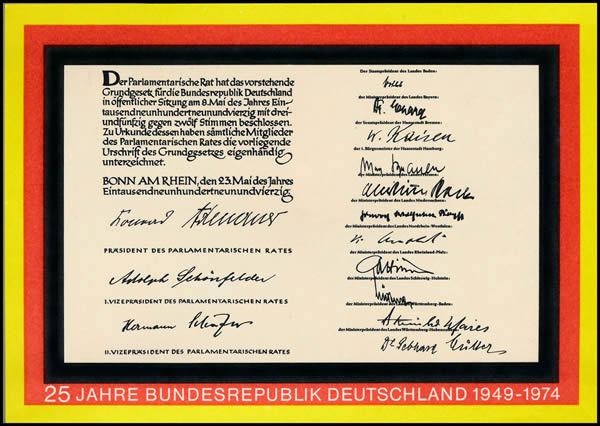 Der Parlamentarische Rat hat das vorstehende
Grundgesetz für die Bundesrepublik Deutschland
in öffentlicher Sitzung am 8. Mai des Jahres Ein-
tausendneunhundertneunundvierzig mit drei-
undfünfzig gegen zwölf Stimmen beschlossen.
Zu Urkunde dessen haben sämtliche Mitglieder
des Parlamentarischen Rats die vorliegende
Urschrift des Grundgesetzes eigenhändig
unterzeichnet.
BONN AM RHEIN, den 23. Mai des Jahres
Eintausendneunhundertneunundvierzig.
Konrad Adenauer
PRÄSIDENT DES PARLAMENTARISCHEN RATES
Adolph Schönfelder
I. VIZEPRÄSIDENT DES PARLAMENTARISCHEN RATES
Hermann Schäfer
II. VIZEPRÄSIDENT DES PARLAMENTARISCHEN RATES
Der Staatspräsident des Landes Baden:
der Ministerpräsident des Landes Bayern:
Dr. Ehard
der Senatspräsident der Hansestadt Bremen:
W. Kaisen
der 1. Bürgermeister der Hansestadt Hamburg:
Max Brauer
der Ministerpräsident des Landes Niedersachsen:
der Ministerpräsident des Landes Nordrhein-Westfalen:
K. Arnold
der Ministerpräsident des Landes Rheinland-Pfalz:
der Ministerpräsident des Landes Schleswig-Holstein:
der Ministerpräsident des Landes Württemberg-Baden:
der Ministerpräsident des Landes Württemberg-Hohenzollern:
Dr. Gebhard Müller
25 JAHRE BUNDESREPUBLIK DEUTSCHLAND 1949-1974